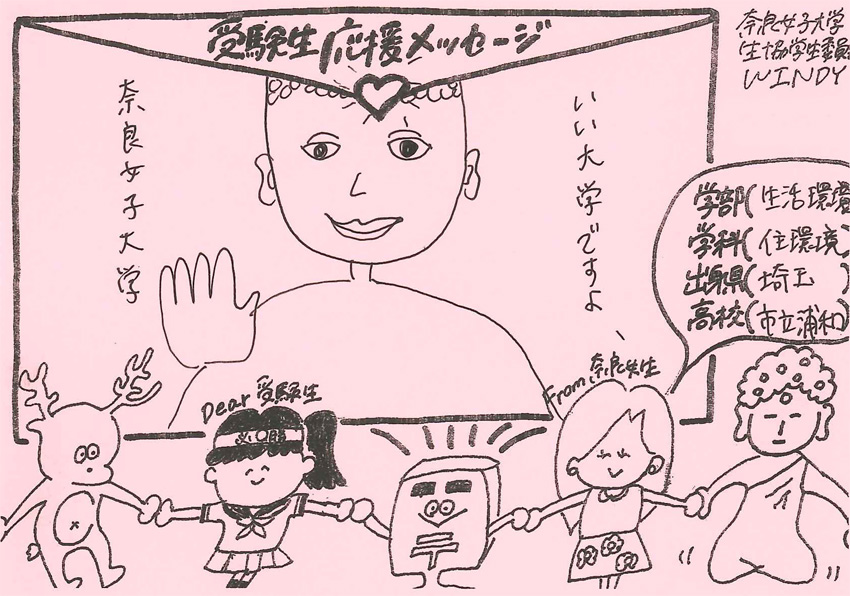 受験生応援メッセージ
奈良女子大学
生協学生委員
WINDY
奈良女子大学
いい大学ですよ
学部(生活環境
学科(住環境)
出身県(埼玉)
高校(市立浦和)
Dear 受験生
From
必○勝
〒